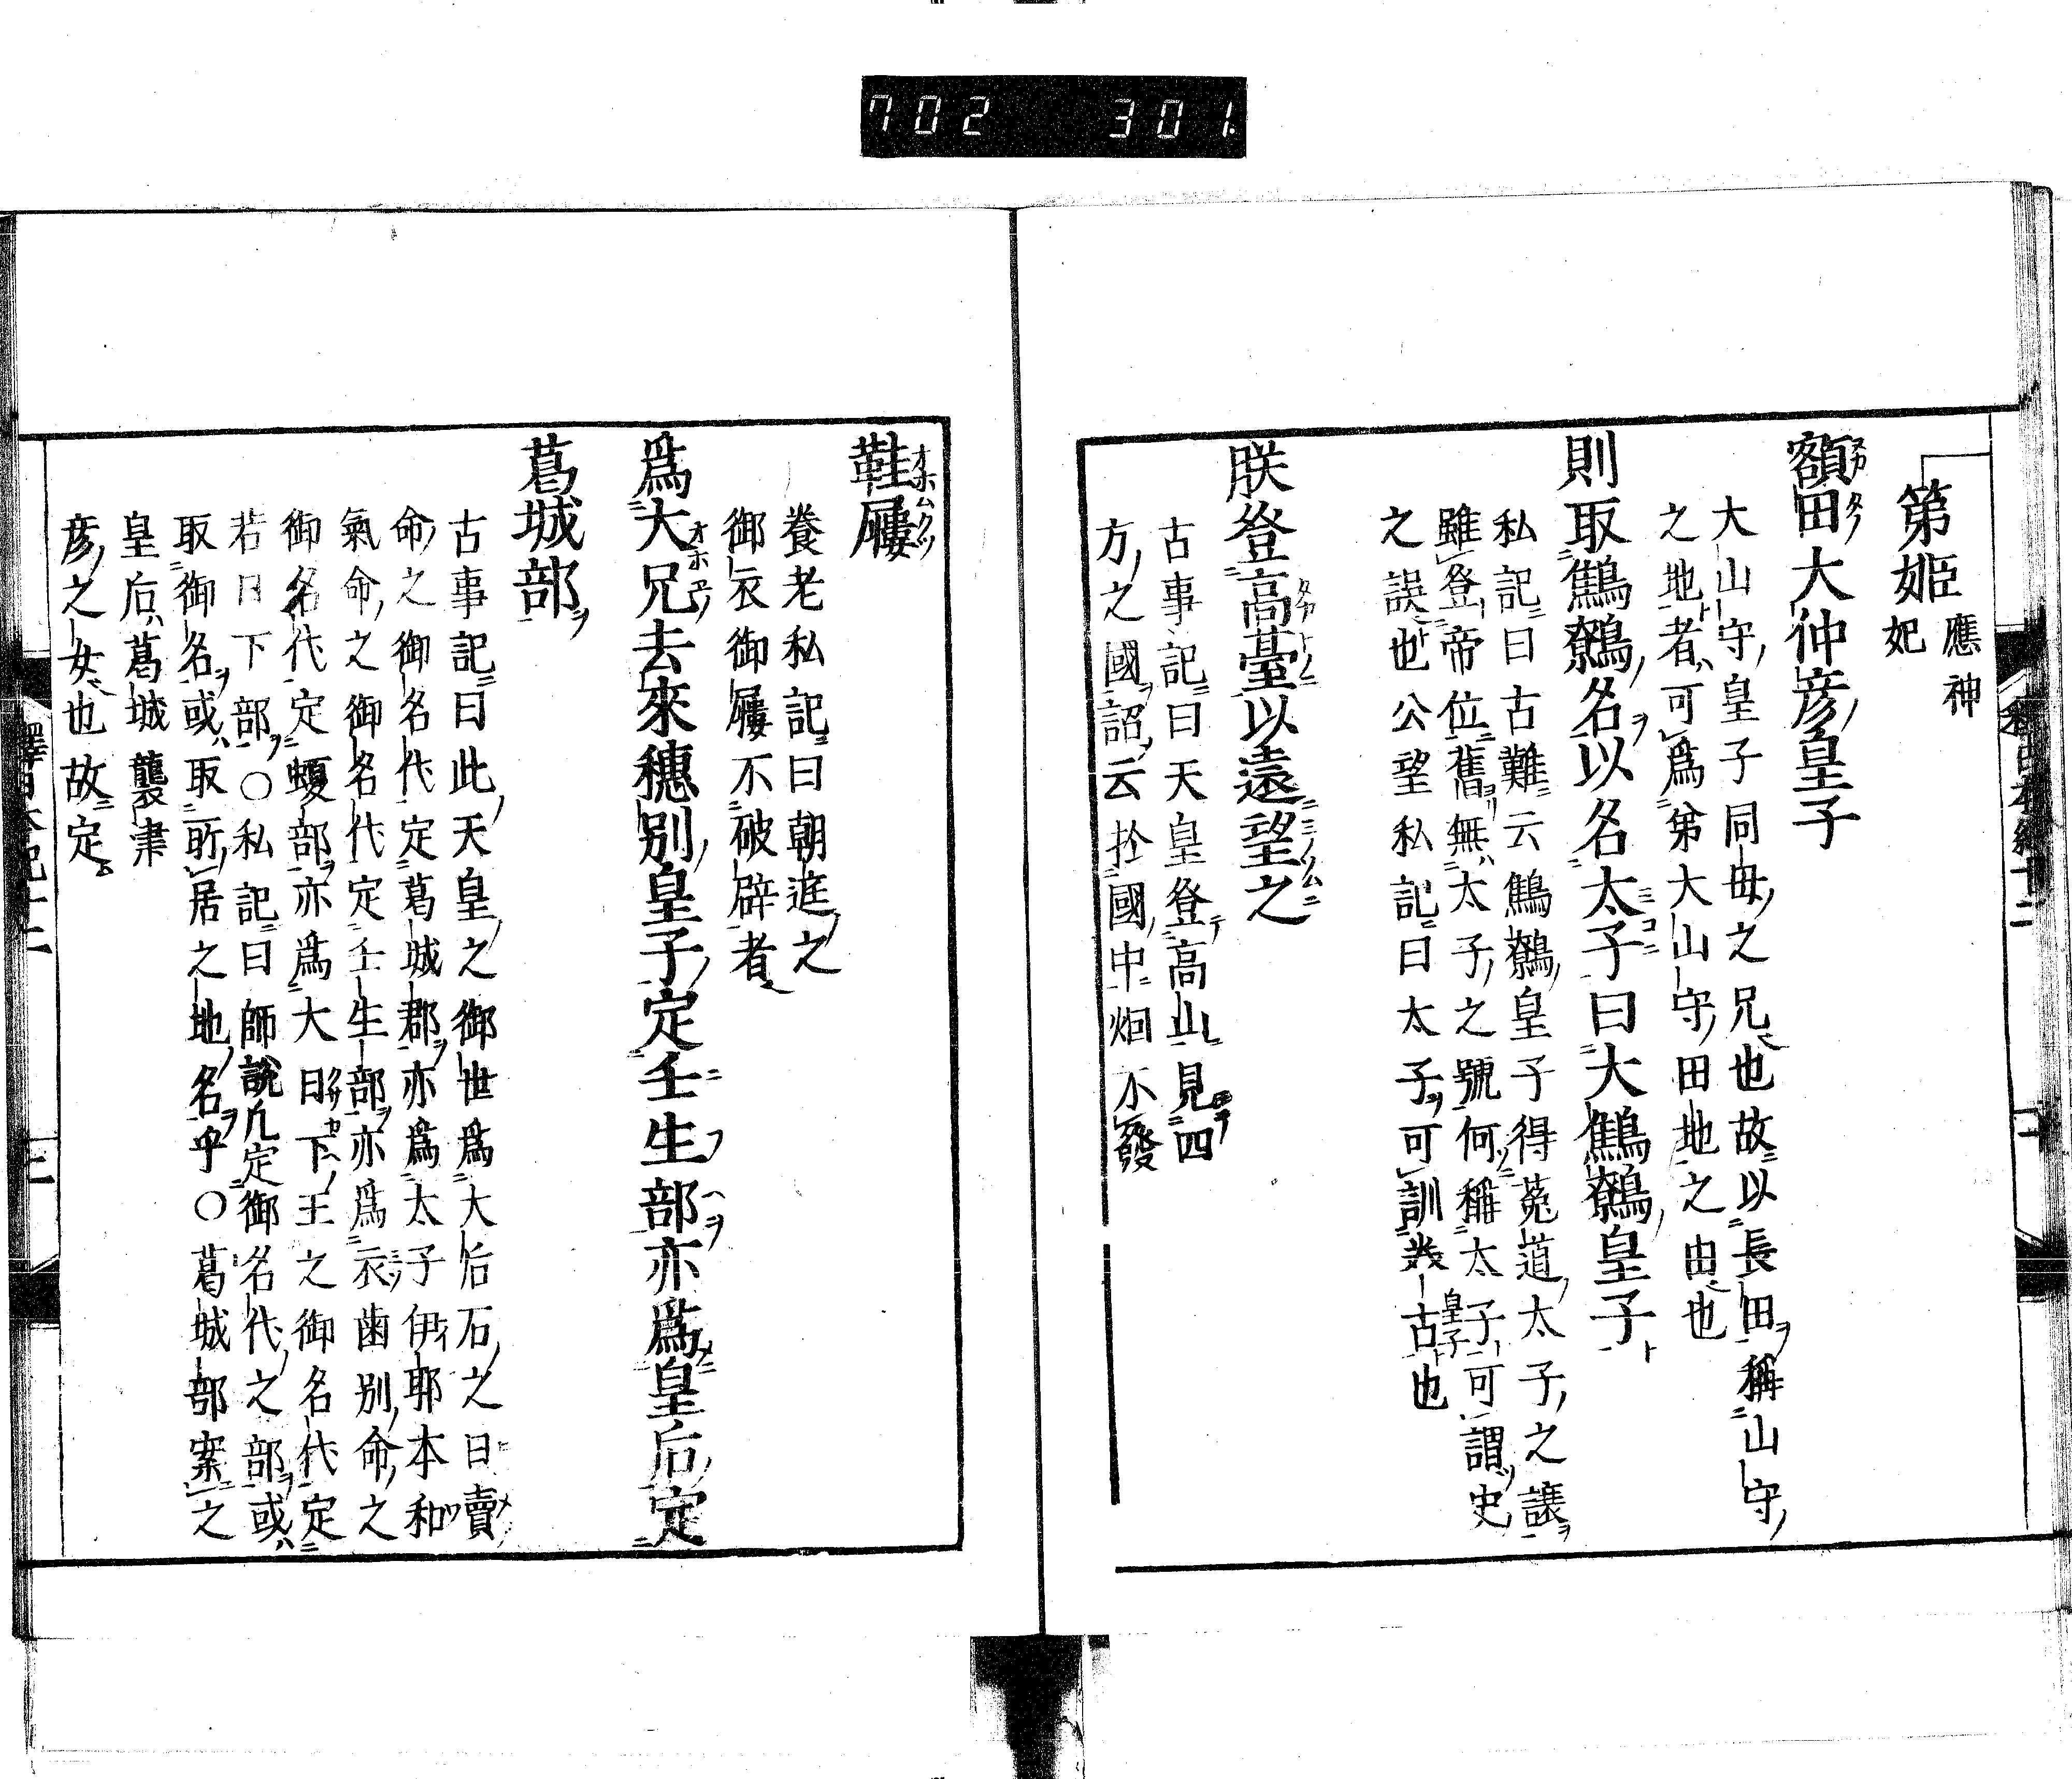 702 301
第姫 應神妃
額田大仲彦皇子
大山守皇子同母之兄也故以長田稱山守
之地者可爲第大山守田地之由也
則取鷦鷯名以名太子曰大鷦鷯皇子
私記曰古難云鷦鷯皇子得菟道太子之譲
雖登帝位舊無太子之號何稱太子可謂史
之誤也公望私記曰太子可訓
古也
朕登高臺以遠望之
古事記曰天皇登高山見四
方之國詔云於國中烟不發
鞋屨
養老私記曰朝庭之
御衣御屨不破辟者
爲大兄去來穗別皇子定壬生部亦爲皇后定
葛城部
古事記曰此天皇之御世爲大后石之日賣
命之御名代定葛城郡亦爲太子伊耶本和
氣命之御名代定壬生部亦爲水歯別命之
御名代定蝮部亦爲大日下王之御名代定
若日下部〇私記曰師說凡定御名代之部或
取御名或取所居之地名乎〇葛城部案之
皇后葛城襲津
彦之女也故定
釋日本紀十二